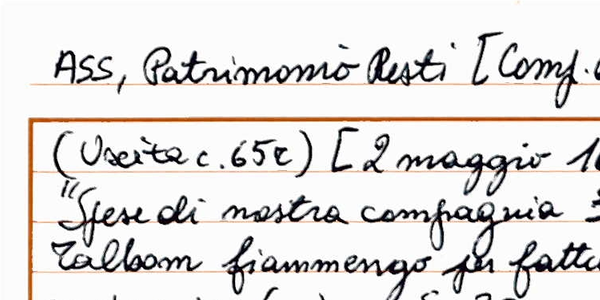 ASS, Patrimonio Resti [Comp.
(Uscita c. 65r) [2 maggio 16
"Spese di nostra compagnia
Talbom fiammengo per fattu